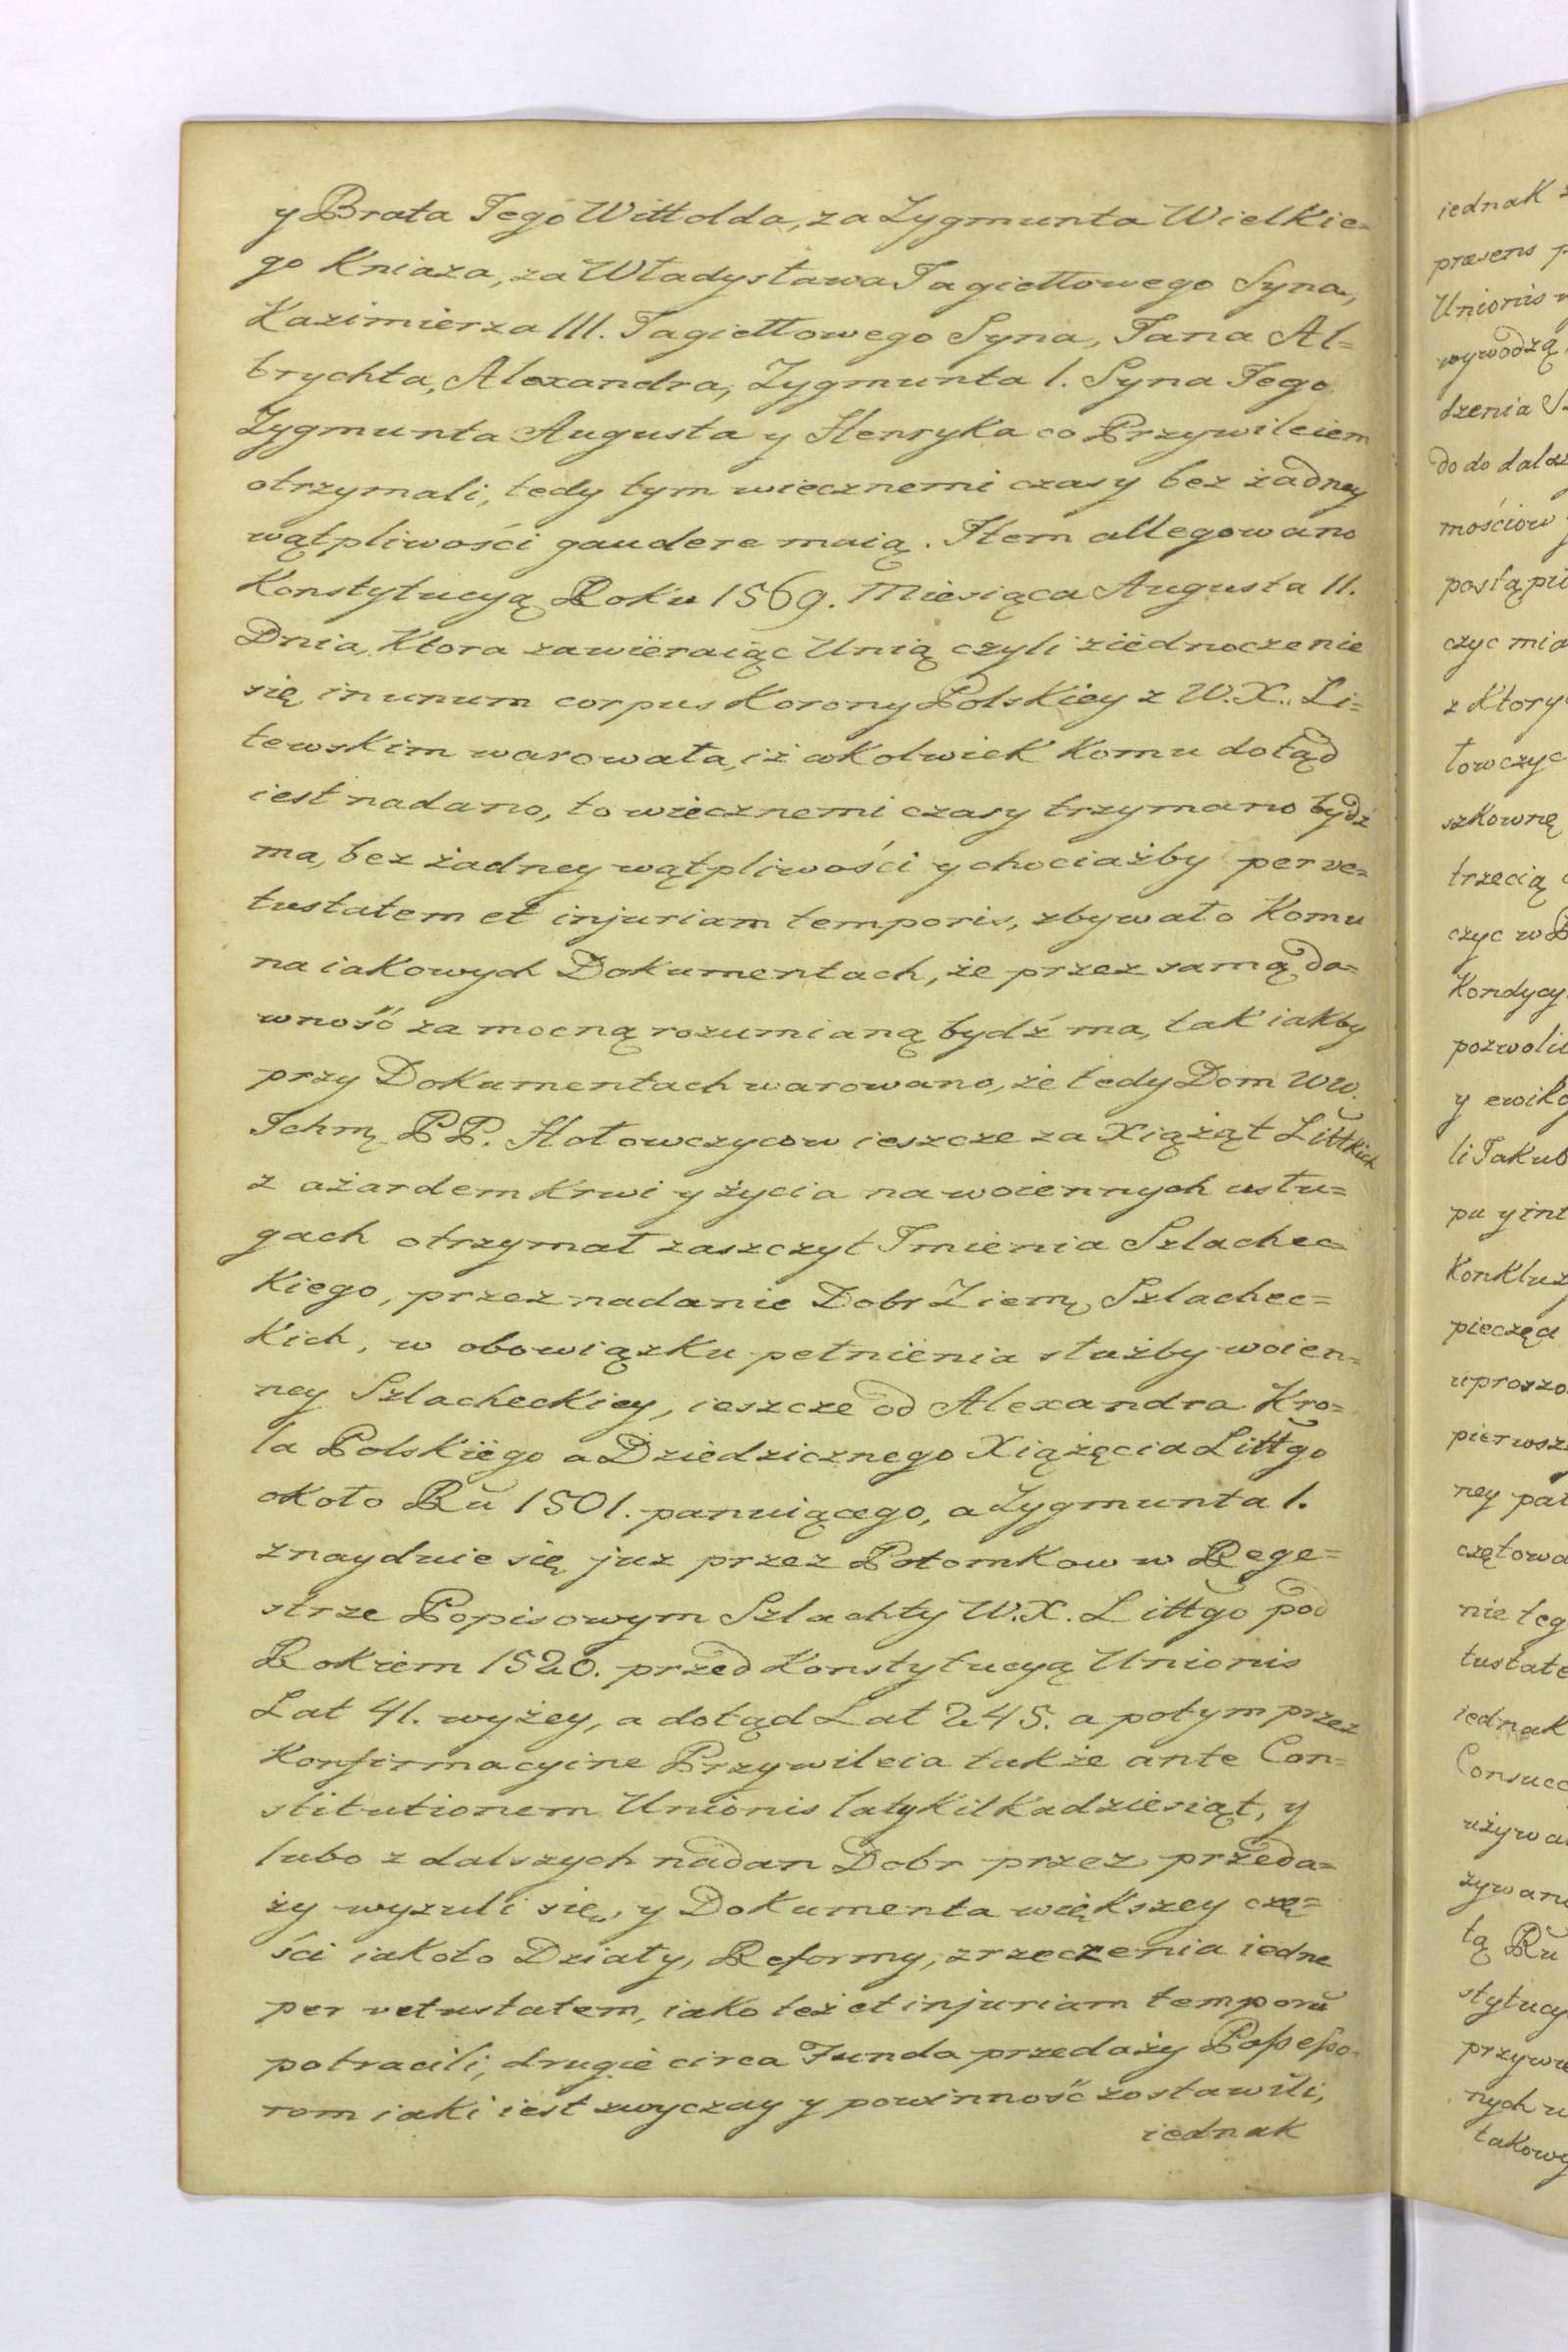 y Brata Jego Wittolda, za Zygmunta Wielkie=
go Kniaza, za Władysława Jagiełłowego Syna,
Kazimierza III. Jagiełłowego Syna, Jana Al=
brychta, Alexandra, Zygmunta 1. Syna Jego
Zygmunta Augusta y Henryka co Przywileiem
otrzymali, tedy tym wiecznemi czasy bez żadney
wątpliwości gaudere maią. Item allegowano
Konstytucyą Roku 1569. Miesiąca Augusta 11.
Dnia, Ktora zawieraiąc Unią czyli ziednoczenie
się in unum corpus Korony Polskiey z W.X. Li=
tewskim warowała, iż cokolwiek Komu dotąd
iest nadano, to wiecznemi czasy trzymano bydź
ma, bez żadney wątpliwości y chociażby per ve=
tustatem et injuriam temporis, zbywało Komu
na iakowych Dokumentach, że przez samą da=
wność za mocną rozumianą bydź ma, tak iakby
przy Dokumentach warowano, że tedy Dom WW.
Ichmę PP. Hołowczycow ieszcze za Xiążąt Littkich
z ażardem Krwi y życia na woiennych usłu=
gach otrzymał zaszczyt Imienia Szlachec=
Kiego, przez nadanie Dobr Ziemę Szlachec=
Kich, w obowiązku pełnienia służby woien=
ney Szlacheckiey, ieszcze od Alexandra Kro=
la Polskiego a Dziedzicznego Xiążęcia Littgo
około Ru 1501. panuiącego, a Zygmunta 1.
znayduie się juz przez Potomkow w Rege=
strze Popisowym Szlachty W.X. Littgo pod
Rokiem 1528. przed Konstytucyą Unionis
Lat 41. wyżey, a dotąd Lat 245. a potym przez
Konfirmacyine Przywileia także ante Con=
stitutionem Unionis laty Kilkadziesiąt, y
lubo z dalszych nadan Dobr przez przeda=
ży wyzuli się, y Dokumenta większey czę=
ści iakoto Działy, Reformy, zrzeczenia iedne
per vetustatem, iako też et injuriam temporu
potracili, drugie circa Funda przedaży Possesso=
rom iaki iest zwyczay y powinność zostawili,
iednak
iednak
præsens
Unionis
wywodzą
dzenia
do do
mościow
postąpi
czyc
z Ktory
łowczyc
szkownę
trzecią
czyc w
Kondycy
pozwoli
y
li Jakub
pu y int
Konkluz
pieczęci
uproszo
pierwsz
ney
czętowa
nie teg
tustate
iednak
Consuc
używa
żywan
tą Ru
stytucy
przywi
nych w
takowy